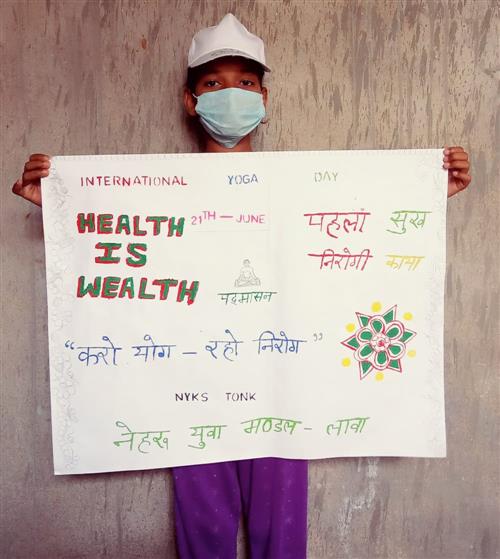 INTERNATIONAL YOGA DAY
21TH — JUNE
HEALTH
IS
WEALTH
पहला सुख
निरोगी काया
पद्मासन
“करो योग – रहो निरोग”
NYKS TONK
नेहरू युवा मण्डल – लावा